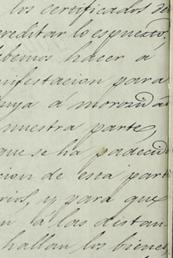 los certificados de
acreditar lo espuesto,
debemos hacer á
nifestacion para
tuya a morosidad
nuestra parte,
que se ha padecid
cion de esa part
rios, y para que
n a las distan
hallan los bienes